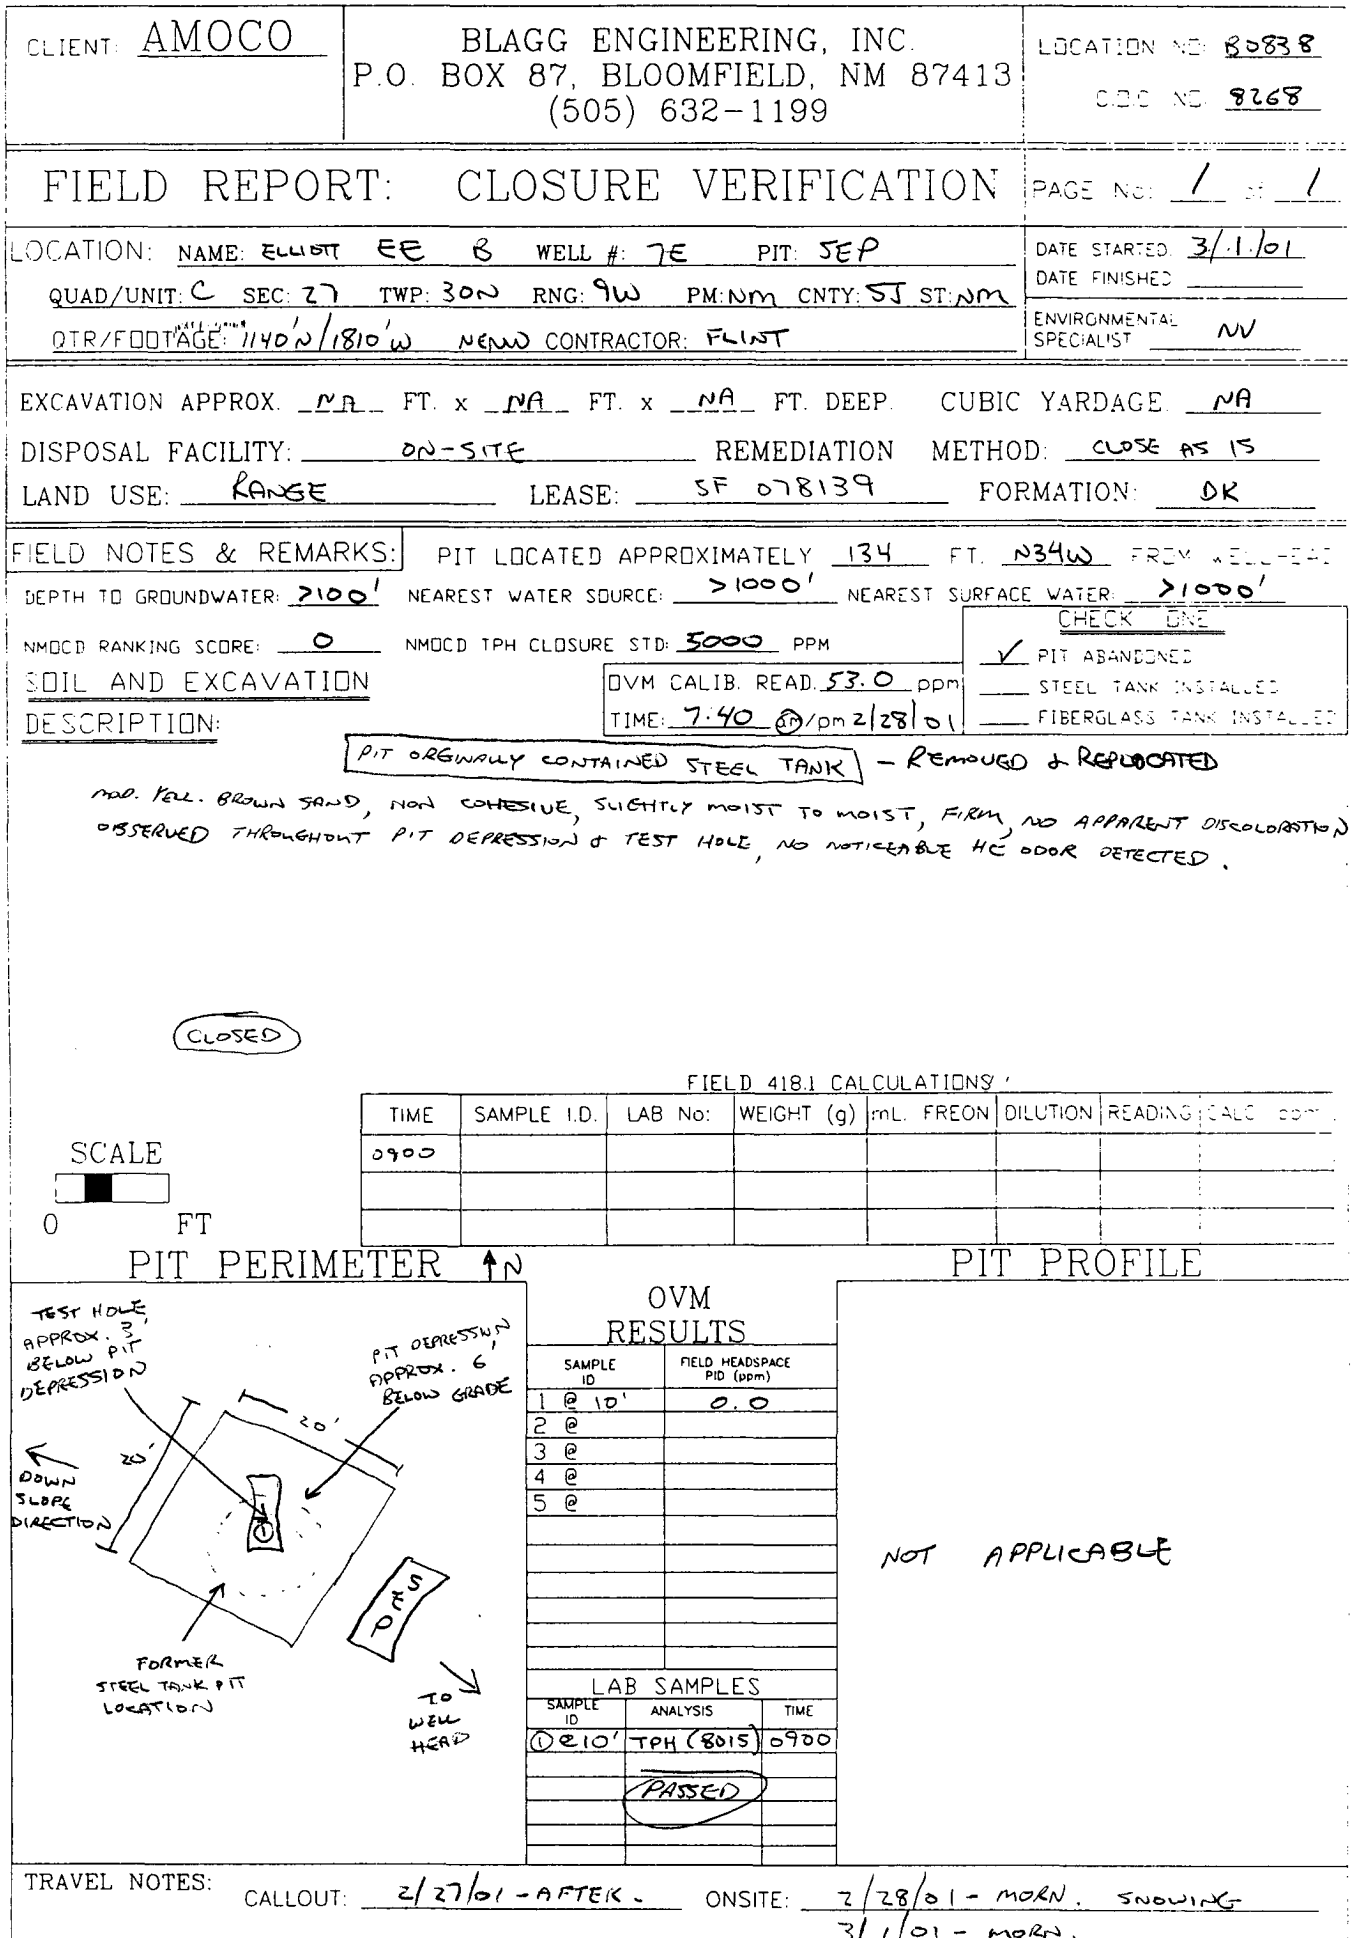 CLIENT: AMOCO
BLAGG ENGINEERING, INC.
P.O. BOX 87, BLOOMFIELD, NM 87413
(505) 632-1199
LOCATION NO: B0838
C.O.C. NO: 8268
FIELD REPORT: CLOSURE VERIFICATION
PAGE No: 1 of 1
LOCATION: NAME: ELLIOTT EE B WELL #: 7E PIT: SEP
QUAD/UNIT: C SEC: 27 TWP: 30N RNG: 9W PM: NM CNTY: SJ ST: NM
QTR/FOOTAGE: 1140'N/1810'W NE/NW CONTRACTOR: FLINT
DATE STARTED: 3/1/01
DATE FINISHED
ENVIRONMENTAL
SPECIALIST NV
EXCAVATION APPROX. NA FT. x NA FT. x NA FT. DEEP. CUBIC YARDAGE: NA
DISPOSAL FACILITY: ON-SITE REMEDIATION METHOD: CLOSE AS IS
LAND USE: RANGE LEASE: SF 078139 FORMATION: DK
FIELD NOTES & REMARKS: PIT LOCATED APPROXIMATELY 134 FT. N34W FROM WELLHEAD
DEPTH TO GROUNDWATER: >100' NEAREST WATER SOURCE: >1000' NEAREST SURFACE WATER: >1000'
NMOCD RANKING SCORE: 0 NMOCD TPH CLOSURE STD: 5000 PPM
CHECK ONE
✓ PIT ABANDONED
STEEL TANK INSTALLED
FIBERGLASS TANK INSTALLED
SOIL AND EXCAVATION
DESCRIPTION:
OVM CALIB. READ. 53.0 ppm
TIME: 7:40 am/pm 2/28/01
PIT ORGINALLY CONTAINED STEEL TANK - REMOVED & REPLOCATED
MOD. YELL. BROWN SAND, NON COHESIVE, SLIGHTLY MOIST TO MOIST, FIRM, NO APPARENT DISCOLORATION
OBSERVED THROUGHOUT PIT DEPRESSION & TEST HOLE, NO NOTICEABLE HC ODOR DETECTED.
CLOSED
FIELD 418.1 CALCULATIONS
TIME SAMPLE I.D. LAB No: WEIGHT (g) mL. FREON DILUTION READING CALC. ppm
0900
SCALE
0 FT
PIT PERIMETER N
PIT PROFILE
TEST HOLE
APPROX. 3'
BELOW PIT
DEPRESSION
PIT DEPRESSION
APPROX. 6'
BELOW GRADE
20'
20'
DOWN
SLOPE
DIRECTION
1
SEP
FORMER
STEEL TANK PIT
LOCATION
TO
WELL
HEAD
OVM
RESULTS
SAMPLE ID FIELD HEADSPACE PID (ppm)
1 @ 10' 0.0
2 @
3 @
4 @
5 @
LAB SAMPLES
SAMPLE ID ANALYSIS TIME
①@10' TPH (8015) 0900
PASSED
NOT APPLICABLE
TRAVEL NOTES: CALLOUT: 2/27/01 - AFTER. ONSITE: 2/28/01 - MORN. SNOWING
3/1/01 - MORN.